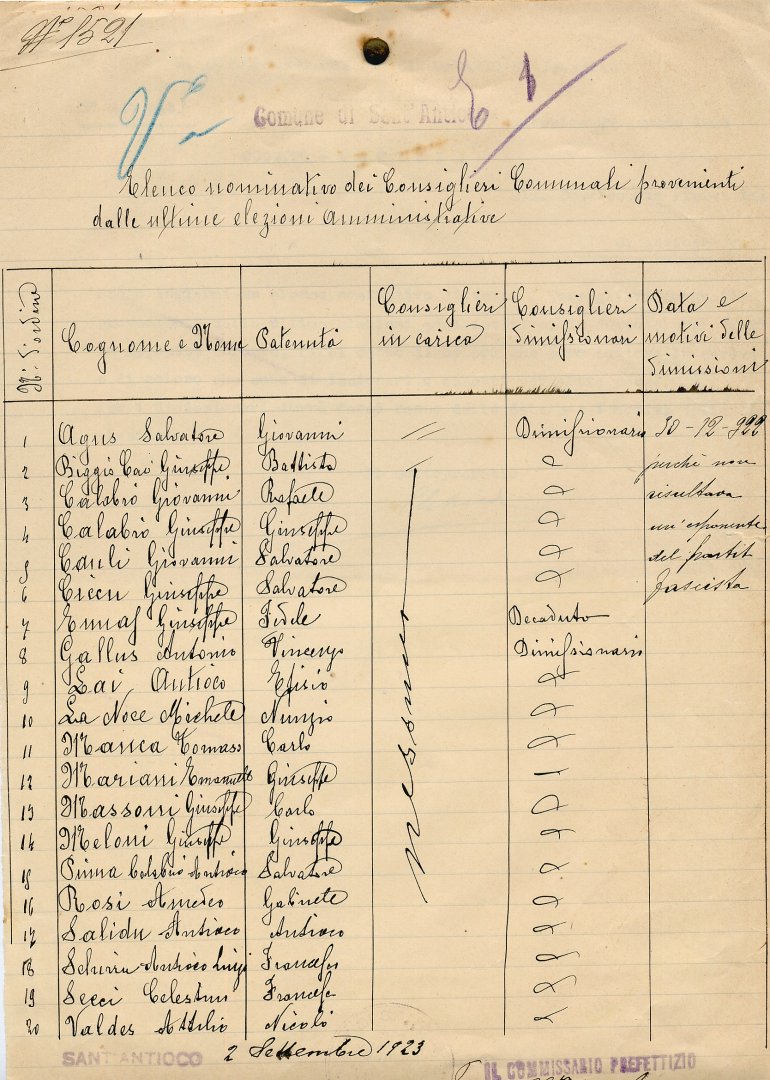 Nº 1521
Comune di Sant'Antioco
Elenco nominativo dei Consiglieri Comunali provenienti
dalle ultime elezioni Amministrative
Nº d'ordine Cognome e Nome Paternità Consiglieri in carica Consiglieri dimissionari Data e motivi delle dimissioni
1 Agus Salvatore Giovanni " Dimissionario 30-12-922
2 Biggio Cao Giuseppe Battista " perchè non
3 Calabrò Giovanni Rafaele risultava
4 Calabrò Giuseppe Giuseppe un'esponente
5 Cauli Giovanni Salvatore del partit
6 Ciccu Giuseppe Salvatore fascista
7 Ennas Giuseppe Fedele Decaduto
8 Gallus Antonio Vincenzo Dimissionario
9 Lai Antioco Efisio
nessuno
10 La Noce Michele Nunzio
11 Manca Tomaso Carlo
12 Mariani Emanuele Giuseppe
13 Massoni Giuseppe Carlo
14 Meloni Giuseppe Giuseppe
15 Pinna Calabrò Antioco Salvatore
16 Rosi Amedeo Gabinete
17 Salidu Antioco Antioco
18 Schirru Antioco Luigi
19 Secci Celestino
20 Valdes Attilio Nicolò
SANT'ANTIOCO 2 Settembre 1923 IL COMMISSARIO PREFETTIZIO